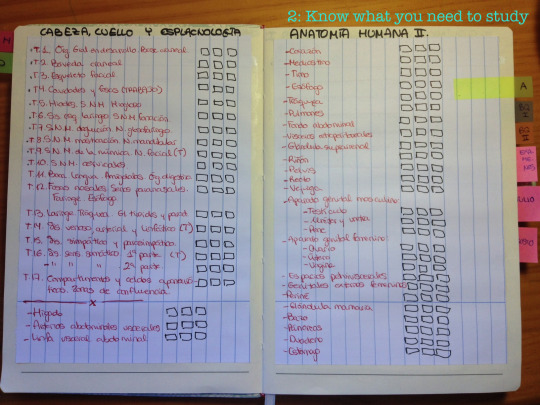 2: Know what you need to study
CABEZA, CUELLO Y ESPLACNOLOGIA
T.2. Bóveda craneal
T.3. Esqueleto facial
T.4. Cavidades y fosas (TRABAJO)
T.5. Hioides S.N.M. Hipogloso
T.6. Sis. org. laringe S.N.M. fonación
T.7. S.N.M. deglución N. glosofaríngeo
T.8. S.N.M. masticación N. mandibular
T.9. S.N.M. de la mímica N. facial (T)
T.10. S.N.M. cervicales
T.11. Boca Lengua Amígdalas Org. digestivo
T.12. Fosas nasales Senos paranasales.
Faringe. Esófago
T.13. Laringe Tráquea. Gl. tiroides y parat.
T.14. Sis. venoso, arterial y linfático (T)
T.15. Sis. simpático y parasimpático.
T.16. Sis. 1ª parte (T)
" " 2ª parte
T.17. Compartimentos y celdas
Zonas de confluencia.
x
-Hígado
-Arterias abdominales viscerales
-Linfa visceral abdominal
ANATOMÍA HUMANA II.
-Corazón
-Mediastino
-Timo
-Esófago
-Tráquea
-Pulmones
-Fondo abdominal
-Vísceras
-Glándula suprarrenal
-Riñón
-Pelvis
-Recto
-Vejiga
-Aparato genital masculino
-Testículo
-Pene
-Aparato genital femenino
-Ovario
-Útero
-Vagina
-Espacios pelvisubperitoneales
-Genitales externos femeninos
-Periné
-Glándula mamaria
-Bazo
-Páncreas
-Duodeno
-Estómago
A